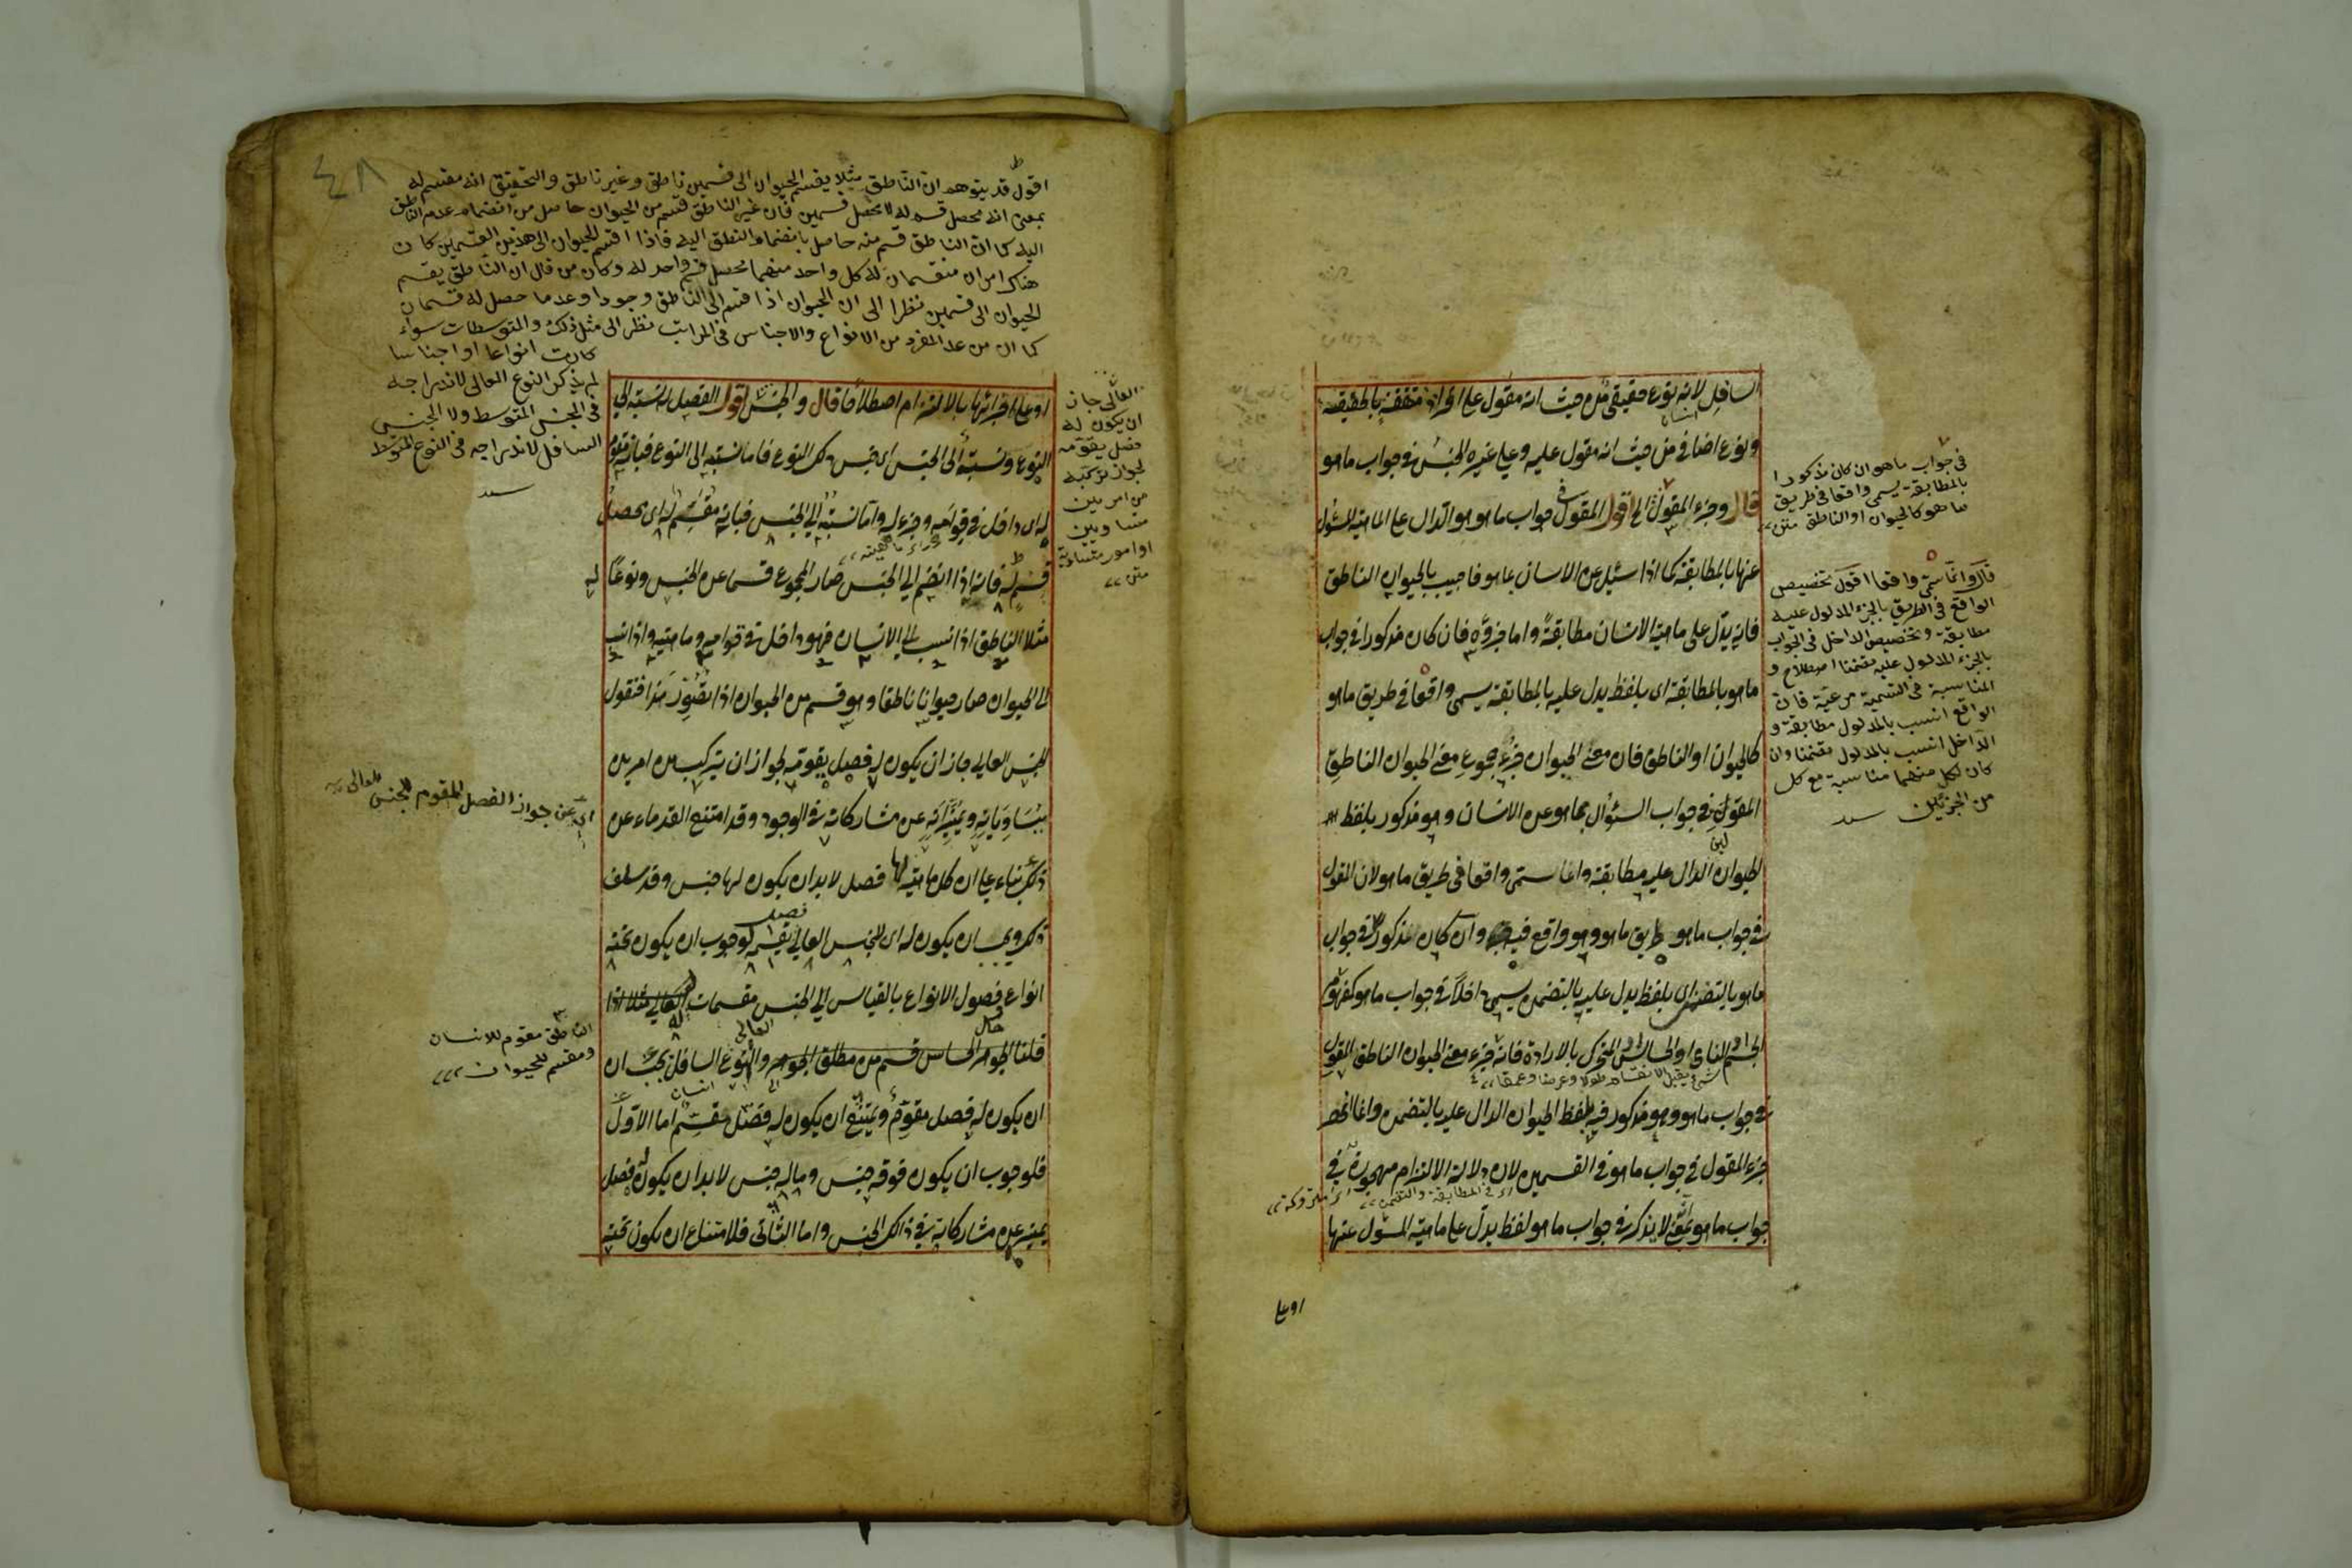 السافل لانه نوع حقيقى من حيث انه مقول على افراد متفقة بالحقيقة
انسان
ونوع اضافى من حيث انه مقول عليه وعلى غيره الجنس فى جواب ما هو
قال وجزء المقول الخ اقول المقول فى جواب ما هو هو الدال على الماهية المسئول
عنها بالمطابقة كما اذا سئل عن الانسان بما هو فاجيب بالحيوان الناطق
فانه يدل على ماهية الانسان مطابقة واما جزؤه فان كان مذكورا فى جواب
ما هو بالمطابقة اى بلفظ يدل عليه بالمطابقة يسمى واقعا فى طريق ما هو
كالحيوان او الناطق فان معنى الحيوان جزء مجموع معنى الحيوان الناطق
المقول فى جواب السؤال بما هو عن الانسان وهو مذكور بلفظ
الحيوان الدال عليه مطابقة وانما سمى واقعا فى طريق ما هو لان المقول
فى جواب ما هو طريق ما هو وهو واقع فيه وان كان مذكورا فى جواب
ما هو بالتضمن اى بلفظ يدل عليه بالتضمن يسمى داخلا فى جواب ما هو كمفهوم
الجسم النامى او الحساس او المتحرك بالارادة فانه جزء معنى الحيوان الناطق المقول
شىء يقبل الانقسام طولا وعرضا وعمقا
فى جواب ما هو وهو مذكور فيه بلفظ الحيوان الدال عليه بالتضمن وانما انحصر
جزء المقول فى جواب ما هو فى القسمين لان دلالة الالتزام مهجورة فى
اى فى المطابقة والتضمن
اى متروكة
جواب ما هو بمعنى لا يذكر فى جواب ما هو لفظ يدل على ماهية المسئول عنها
او على
فى جواب ما هو ان كان مذكورا
بالمطابقة يسمى واقعا فى طريق
ما هو كالحيوان او الناطق متن
قال وانما سمى واقعا اقول تخصيص
الواقع فى الطريق بالجزء المدلول عليه
مطابقة وتخصيص الداخل فى الجواب
بالجزء المدلول عليه تضمنا اصطلاح و
المناسبة فى التسمية مرعية فان
الواقع انسب بالمدلول مطابقة و
الداخل انسب بالمدلول تضمنا وان
كان لكل منهما مناسبة مع كل
من الجزئين سيد
٤٨
اقول قد يتوهم ان الناطق مثلا يقسم الحيوان الى قسمين ناطق وغير ناطق والتحقيق انه مقسم له
بمعنى انه محصل قسم له لا محصل قسمين فان غير الناطق قسم من الحيوان حاصل من انضمام عدم الناطق
اليه كما ان الناطق قسم منه حاصل بانضمام النطق اليه فاذا اقسم الحيوان الى هذين القسمين كان
هناك امران منقسمان له كل واحد منهما محصل قسم واحد له وكان من قال ان الناطق يقسم
الحيوان الى قسمين نظرا الى ان الحيوان اذا قسم الى الناطق وجودا وعدما حصل له قسمان
كما ان من عد المفرد من الانواع والاجناس فى المراتب نظر الى مثل ذلك والمتوسطات سواء
كانت انواعا او اجناسا
لم يذكر النوع العالى لاندراجه
فى الجنس المتوسط ولا الجنس
السافل لاندراجه فى النوع المتوسط
سيد
او على اجزائها بالالتزام اصطلاحا قال والجنس اقول الفصل له نسبة الى
النوع ونسبة الى الجنس اى جنس ذلك النوع فاما نسبته الى النوع فبانه مقوم
له اى داخل فى قوامه وجزء له واما نسبته الى الجنس فبانه مقسم له اى محصل
قسم له فانه اذا انضم الى الجنس صار المجموع قسما من الجنس ونوعا له
مثلا الناطق اذا نسب الى الانسان فهو داخل فى قوامه وماهيته واذا نسب
الى الحيوان صار حيوانا ناطقا وهو قسم من الحيوان اذا تصور هذا فنقول
الجنس العالى جاز ان يكون له فصل يقومه لجواز ان يتركب من امرين
يتساويانه ويميزانه عن مشاركاته فى الوجود وقد امتنع القدماء عن
ذلك بناء على ان كل ماهية لها فصل لا بد ان يكون لها جنس وقد سلف
ذلك ويجب ان يكون له اى للجنس العالى فصل يقسمه لوجوب ان يكون تحته
انواع فصول الانواع بالقياس الى الجنس مقسمات له
قلنا الجواهر الحساس قسم من مطلق الجوهر والنوع السافل يجب ان
ان يكون له فصل مقوم ويمتنع ان يكون له فصل مقسم اما الاول
فلوجوب ان يكون فوقه جنس وما له جنس لا بد ان يكون له فصل
يميزه عن مشاركاته فى ذلك الجنس واما الثانى فلامتناع ان يكون تحته
العالى جاز
ان يكون له
فصل يقومه
لجواز تركبه
من امرين
متساويين
او امور متساوية
متن
اى عن جواز الفصل المقوم للجنس العالى
الناطق مقوم للانسان
ومقسم للحيوان